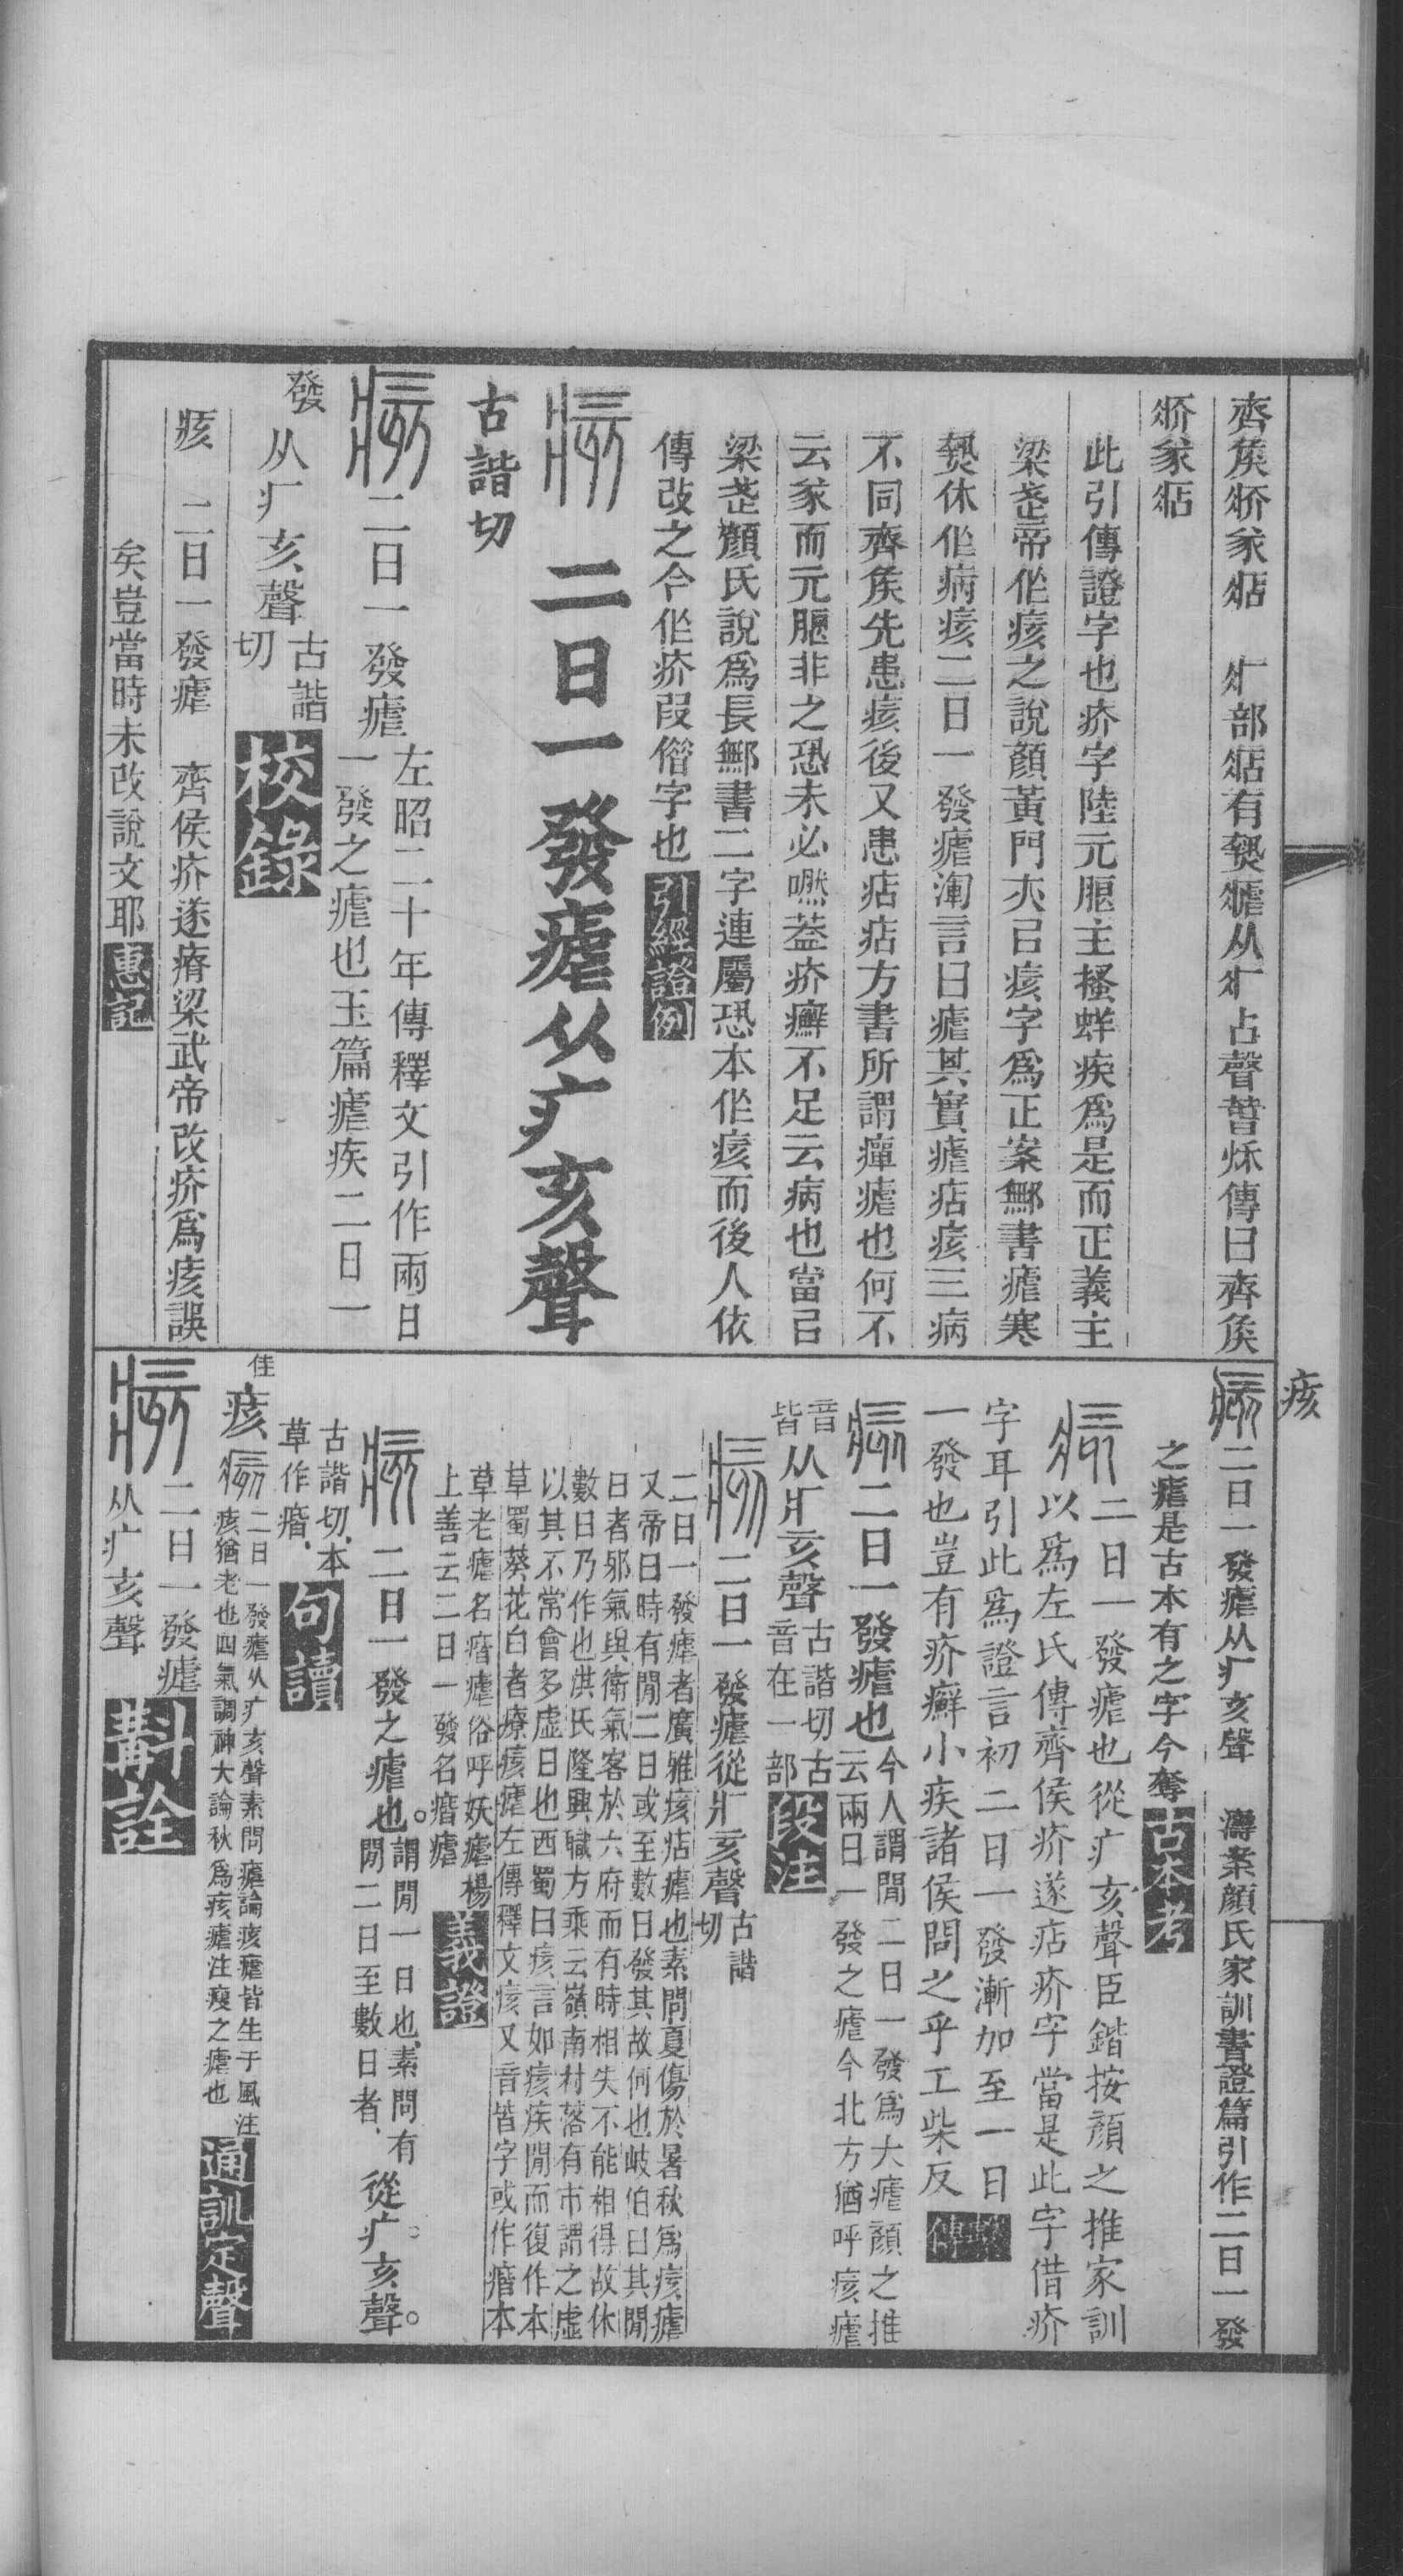 痎
齊矦疥𧰼痁　疒部痁有熱瘧从疒占聲春秌傳曰齊矦
疥𧰼痁
此引傳證字也疥字陸元朖主搔蛘疾爲是而正義主
梁武帝作痎之說顏黃門亦㠯痎字爲正案鄦書瘧寒
熱休作病痎二日一發瘧渾言曰瘧其實瘧痁痎三病
不同齊矦先患痎後又患痁痁方書所謂癉瘧也何不
云𧰼而元朖非之恐未必嘫葢疥癬不足云病也當㠯
梁武顏氏說爲長鄦書二字連屬恐本作痎而後人依
傳改之今作疥叚俗字也引經證例
痎　二日一發瘧从疒亥聲
古諧切
痎二日一發瘧
左昭二十年傳釋文引作兩日
一發之瘧也玉篇瘧疾二日一
發从疒亥聲
古諧
切
校錄
痎　二日一發瘧　齊侯疥遂瘠梁武帝改疥爲痎誤
矣豈當時未改說文耶惠記
痎二日一發瘧从疒亥聲　濤案顏氏家訓書證篇引作二日一發
之瘧是古本有之字今奪古本考
痎二日一發瘧也從疒亥聲臣鍇按顏之推家訓
以爲左氏傳齊侯疥遂痁疥字當是此字借疥
字耳引此爲證言初二日一發漸加至一日
一發也豈有疥癬小疾諸侯問之乎工柴反
繫傳
痎二日一發瘧也
今人謂閒二日一發爲大瘧顏之推
云兩日一發之瘧今北方猶呼痎瘧
音
皆
从疒亥聲
古諧切古
音在一部
段注
痎二日一發瘧從疒亥聲
古諧
切
二日一發瘧者廣雅痎痁瘧也素問夏傷於暑秋爲痎瘧
又帝曰時有閒二日或至數日發其故何也岐伯曰其閒
日者邪氣與衛氣客於六府而有時相失不能相得故休
數日乃作也洪氏隆興職方乘云嶺南村落有市謂之虛
以其不常會多虛日也西蜀曰痎言如痎疾閒而復作本
草蜀葵花白者療痎瘧左傳釋文痎又音皆字或作㾬本
草老瘧名㾬瘧俗呼妖瘧楊
上善云二日一發名㾬瘧
義證
痎　二日一發之瘧也。
謂閒一日也、素問有
閒二日至數日者、
從疒。亥聲。
古諧切、本
草作㾬、
句讀
佳
痎　痎
二日一發瘧从疒亥聲素問瘧論痎瘧皆生于風注
痎猶老也四氣調神大論秋爲痎瘧注瘦之瘧也
通訓定聲
痎二日一發瘧
从疒亥聲
斠詮